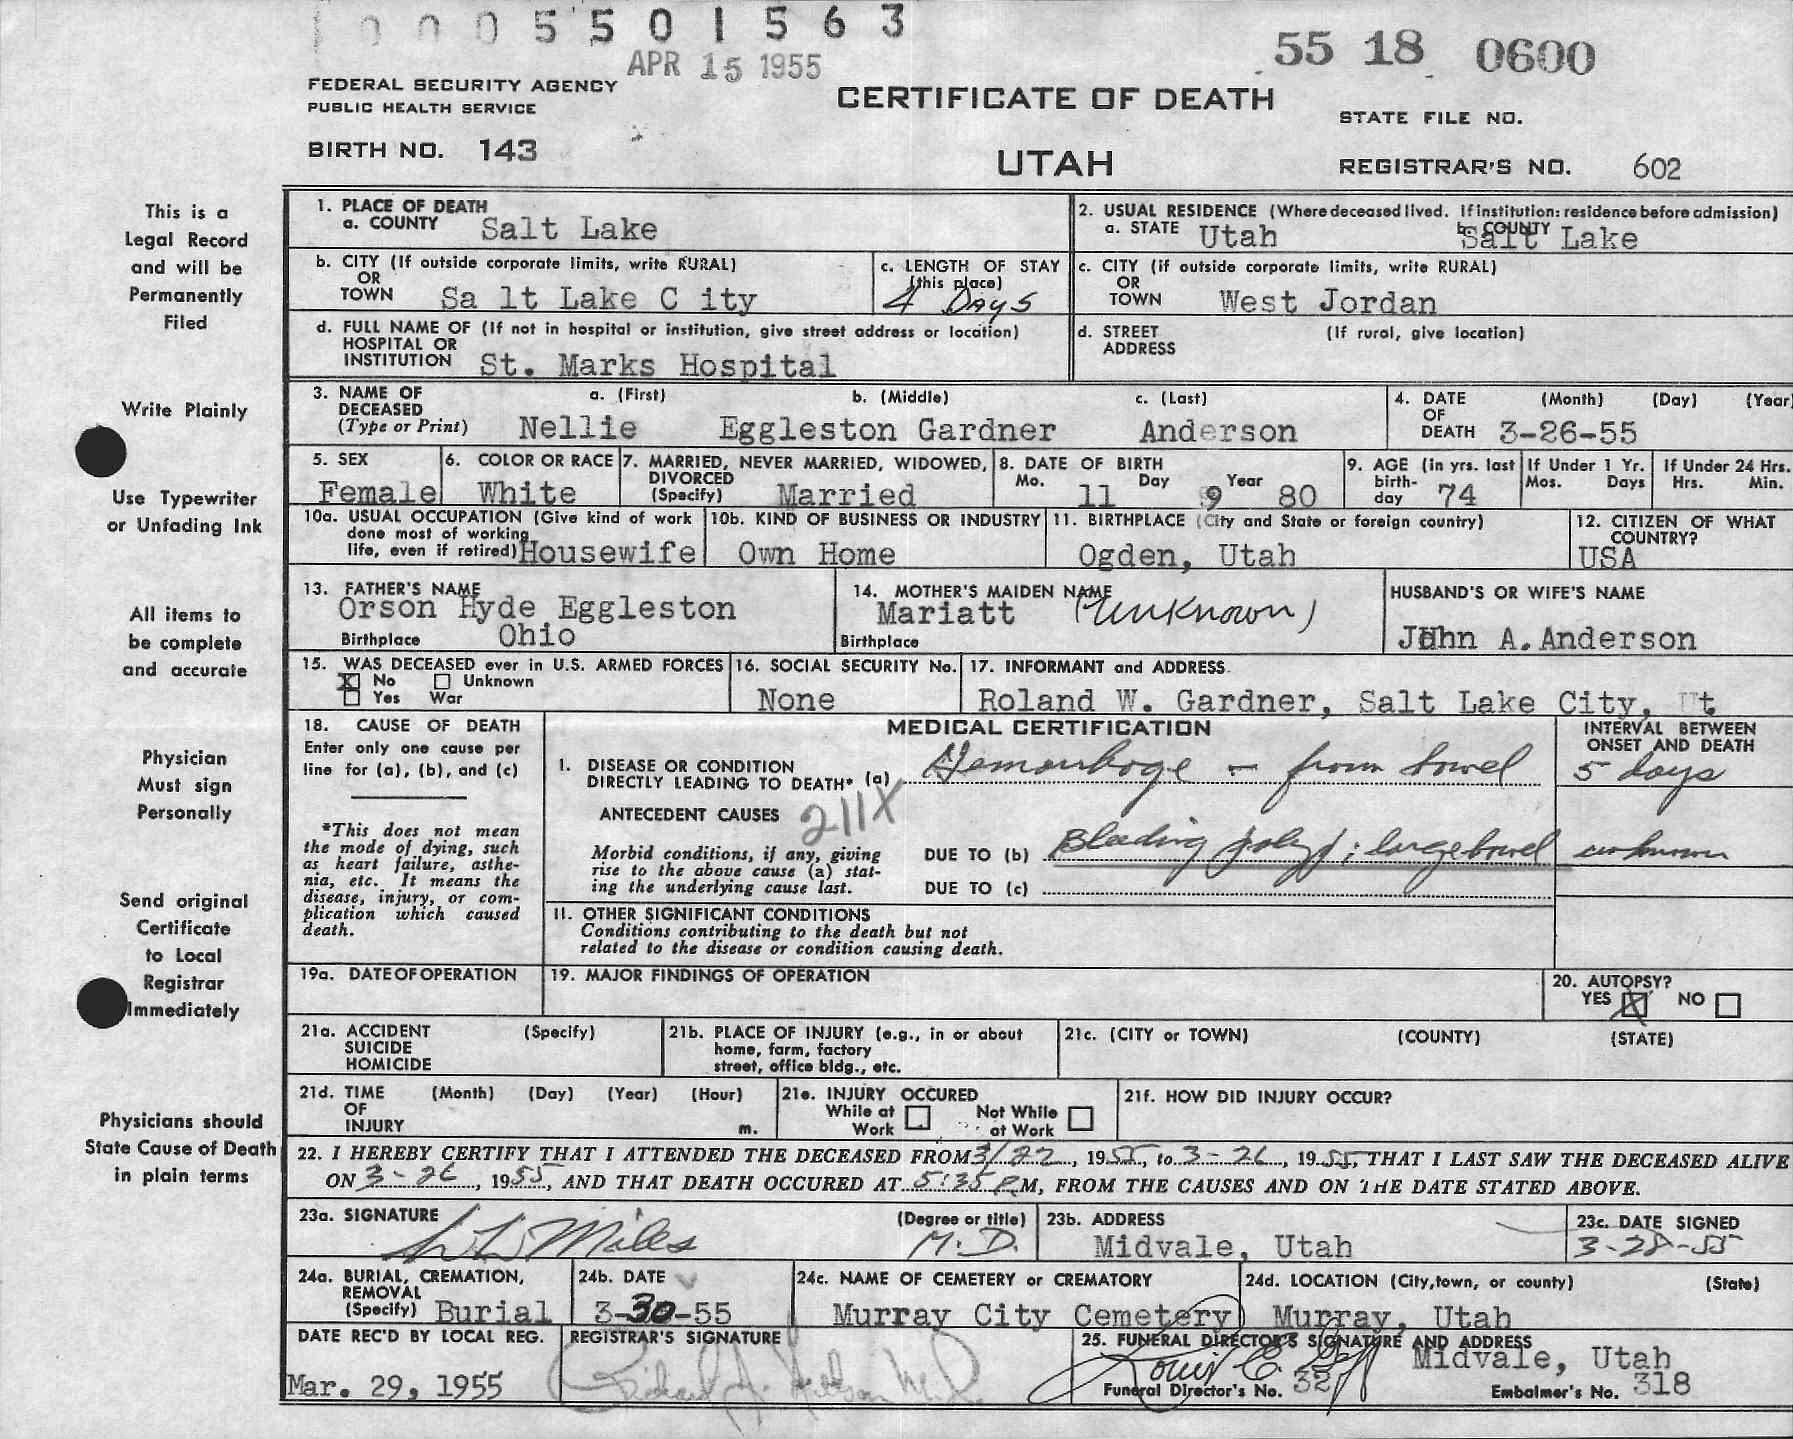 0005501563
APR 15 1955
55 18 0600
FEDERAL SECURITY AGENCY
PUBLIC HEALTH SERVICE
CERTIFICATE OF DEATH
STATE FILE NO.
BIRTH NO. 143
UTAH
REGISTRAR'S NO. 602
This is a
Legal Record
and will be
Permanently
Filed
Write Plainly
Use Typewriter
or Unfading Ink
All items to
be complete
and accurate
Physician
Must sign
Personally
Send original
Certificate
to Local
Registrar
Immediately
Physicians should
State Cause of Death
in plain terms
1. PLACE OF DEATH
a. COUNTY Salt Lake
2. USUAL RESIDENCE (Where deceased lived. If institution: residence before admission)
a. STATE Utah b. COUNTY Salt Lake
b. CITY (If outside corporate limits, write RURAL)
OR
TOWN Sa lt Lake C ity
c. LENGTH OF STAY
(this place)
4 Days
c. CITY (if outside corporate limits, write RURAL)
OR
TOWN West Jordan
d. FULL NAME OF (If not in hospital or institution, give street address or location)
HOSPITAL OR
INSTITUTION St. Marks Hospital
d. STREET (If rural, give location)
ADDRESS
3. NAME OF DECEASED (Type or Print)
a. (First) b. (Middle) c. (Last)
Nellie Eggleston Gardner Anderson
4. DATE OF DEATH (Month) (Day) (Year)
3-26-55
5. SEX
Female
6. COLOR OR RACE
White
7. MARRIED, NEVER MARRIED, WIDOWED,
DIVORCED
(Specify) Married
8. DATE OF BIRTH
Mo. 11 Day 9 Year 80
9. AGE (in yrs. last
birth-
day 74
If Under 1 Yr.
Mos. Days
If Under 24 Hrs.
Hrs. Min.
10a. USUAL OCCUPATION (Give kind of work
done most of working
life, even if retired) Housewife
10b. KIND OF BUSINESS OR INDUSTRY
Own Home
11. BIRTHPLACE (City and State or foreign country)
Ogden, Utah
12. CITIZEN OF WHAT
COUNTRY?
USA
13. FATHER'S NAME
Orson Hyde Eggleston
Birthplace Ohio
14. MOTHER'S MAIDEN NAME
Mariatt (Unknown)
Birthplace
HUSBAND'S OR WIFE'S NAME
John A. Anderson
15. WAS DECEASED ever in U.S. ARMED FORCES
X No Unknown
Yes War
16. SOCIAL SECURITY No.
None
17. INFORMANT and ADDRESS.
Roland W. Gardner, Salt Lake City, Ut
18. CAUSE OF DEATH
Enter only one cause per
line for (a), (b), and (c)
*This does not mean
the mode of dying, such
as heart failure, asthe-
nia, etc. It means the
disease, injury, or com-
plication which caused
death.
MEDICAL CERTIFICATION
INTERVAL BETWEEN
ONSET AND DEATH
I. DISEASE OR CONDITION
DIRECTLY LEADING TO DEATH* (a) Hemorrhage - from bowel 5 days
ANTECEDENT CAUSES 211X
Morbid conditions, if any, giving
rise to the above cause (a) stat-
ing the underlying cause last.
DUE TO (b) Bleeding polyp; large bowel unknown
DUE TO (c)
II. OTHER SIGNIFICANT CONDITIONS
Conditions contributing to the death but not
related to the disease or condition causing death.
19a. DATE OF OPERATION
19. MAJOR FINDINGS OF OPERATION
20. AUTOPSY?
YES X NO
21a. ACCIDENT (Specify)
SUICIDE
HOMICIDE
21b. PLACE OF INJURY (e.g., in or about
home, farm, factory
street, office bldg., etc.
21c. (CITY or TOWN) (COUNTY) (STATE)
21d. TIME (Month) (Day) (Year) (Hour)
OF
INJURY m.
21e. INJURY OCCURED
While at Work Not While at Work
21f. HOW DID INJURY OCCUR?
22. I HEREBY CERTIFY THAT I ATTENDED THE DECEASED FROM 3/22, 1955, to 3-26, 1955, THAT I LAST SAW THE DECEASED ALIVE
ON 3-26, 1955, AND THAT DEATH OCCURED AT 5:35 P.M, FROM THE CAUSES AND ON THE DATE STATED ABOVE.
23a. SIGNATURE (Degree or title)
Miles M.D.
23b. ADDRESS
Midvale, Utah
23c. DATE SIGNED
3-28-55
24a. BURIAL, CREMATION,
REMOVAL
(Specify) Burial
24b. DATE
3-30-55
24c. NAME OF CEMETERY or CREMATORY
Murray City Cemetery
24d. LOCATION (City, town, or county) (State)
Murray, Utah
DATE REC'D BY LOCAL REG.
Mar. 29, 1955
REGISTRAR'S SIGNATURE
25. FUNERAL DIRECTOR'S SIGNATURE AND ADDRESS
Midvale, Utah
Funeral Director's No. 32
Embalmer's No. 318